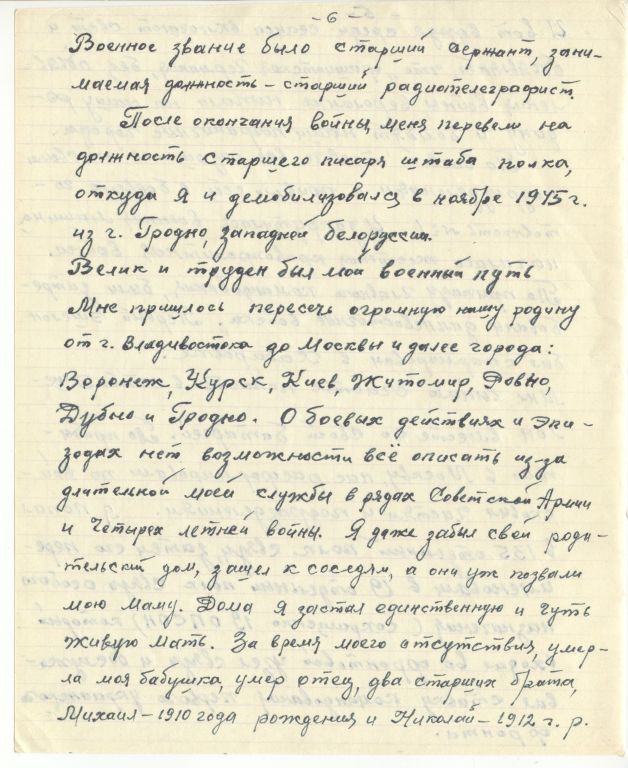 - 6 -
Военное звание было старший сержант, зани-
маемая должность – старший радиотелеграфист.
После окончания войны меня перевели на
должность старшего писаря штаба полка,
откуда я и демобилизовался в ноябре 1945 г.
из г. Гродно, западней белоруссии.
Велик и труден был мой военный путь
Мне пришлось пересечь огромную нашу родину
от г. Владивостока до Москвы и далее города:
Воронеж, Курск, Киев, Житомир, Ровно,
Дубно и Гродно. О боевых действиях и эпи-
зодах нет возможности всё описать из-за
длительной моей службы в рядах Советской Армии
и Четырех летней войны. Я даже забыл свой роди-
тельский дом, зашел к соседям, а они уж позвали
мою маму. Дома я застал единственную и чуть
живую мать. За время моего отсутствия, умер-
ла моя бабушка, умер отец, два старших брата,
Михаил – 1910 года рождения и Николай – 1912 г. р.